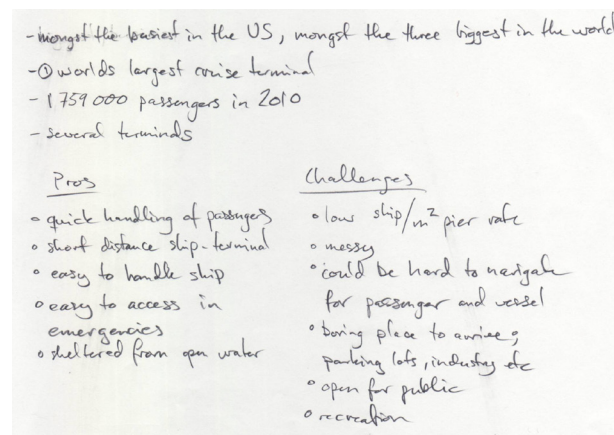 - mongst the busiest in the US, mongst the three biggest in the world
- ① worlds largest cruise terminal
- 1 759 000 passengers in 2010
- several terminals
Pros
o quick handling of passengers
o short distance ship-terminal
o easy to handle ship
o easy to access in
emergencies
o sheltered from open water
Challenges
o low ship/m² pier rate
o messy
o could be hard to navigate
for passenger and vessel
o boring place to arrive;
parking lots, industry etc
o open for public
o recreation